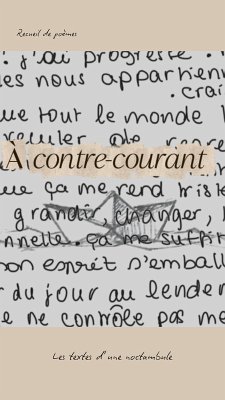 Recueil de poèmes
. j'ai progressé .
es nous appartien
. crai
ue tout le monde
reculer
A contre-courant
ue ça me rend trist
grandir, changer,
nnelle. ça me suffit
on esprit s'emball
du jour au lende
e ne contrôle pas me
Les textes d'une noctambule